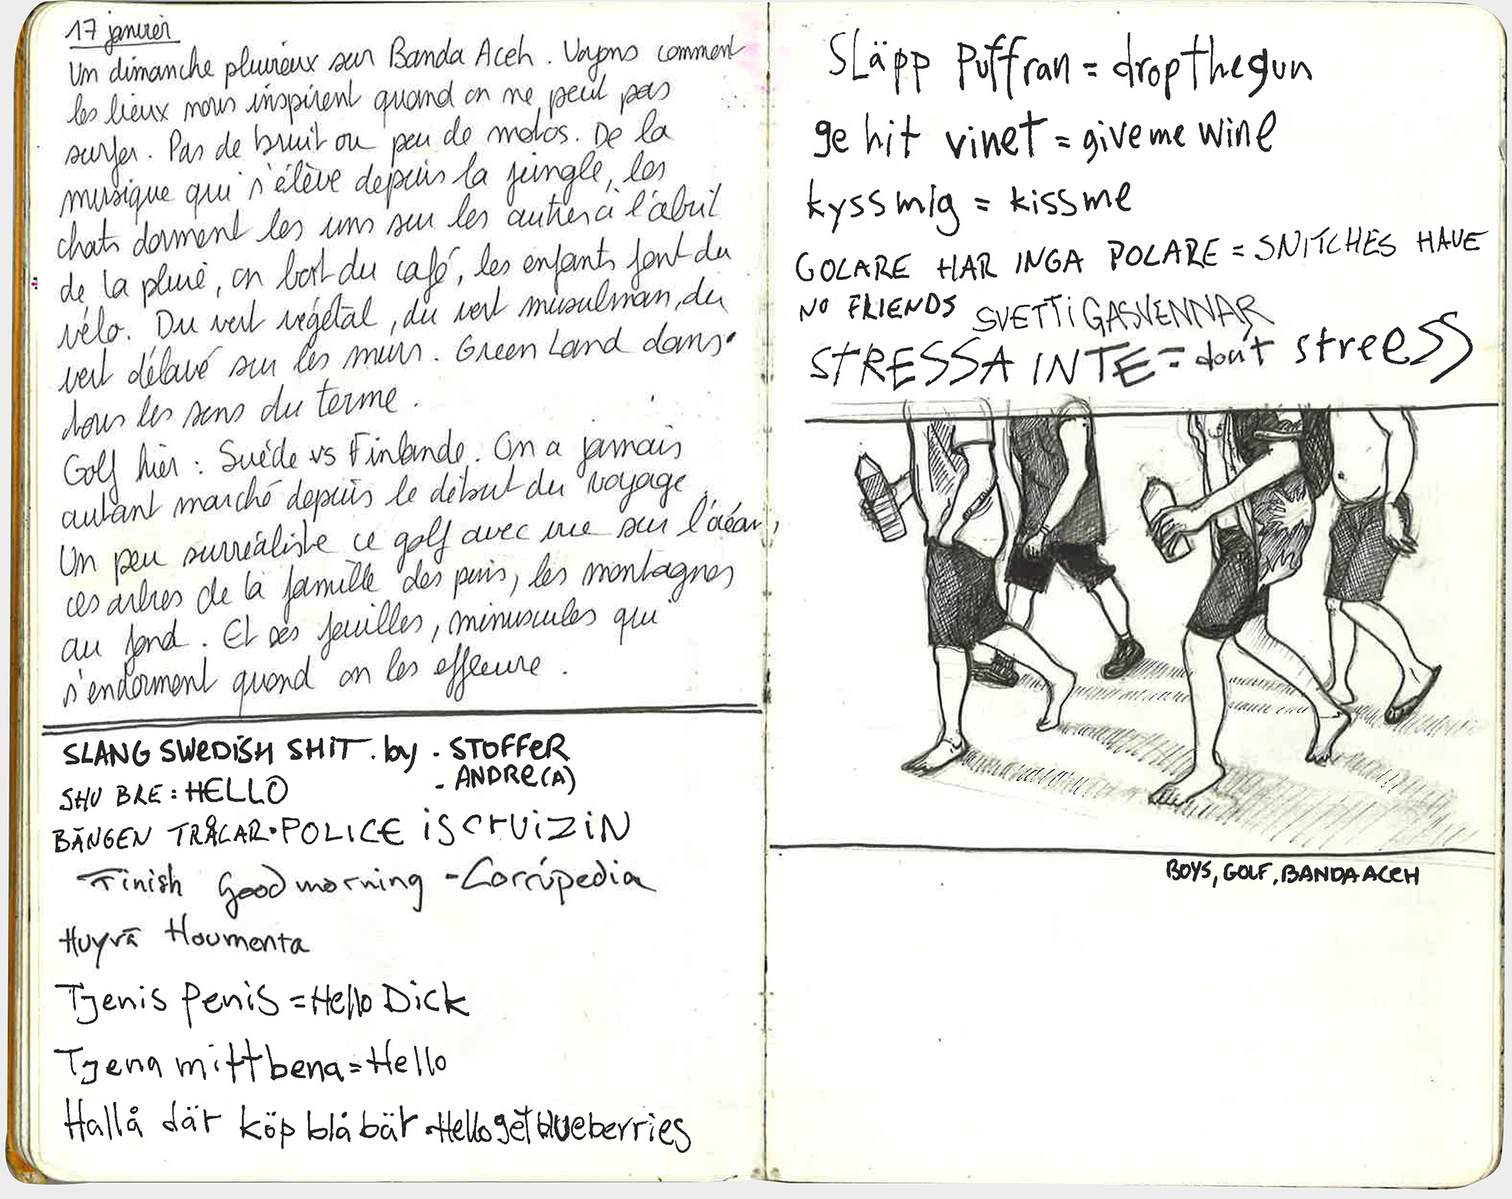 17 janvier
Un dimanche pluvieux sur Banda Aceh. Voyons comment
les lieux nous inspirent quand on ne peut pas
surfer. Pas de bruit ou peu de motos. De la
musique qui s'élève depuis la jungle, les
chats dorment les uns sur les autres à l'abri
de la pluie, on boit du café, les enfants font du
vélo. Du vert végétal, du vert musulman, du
vert délavé sur les murs. Green Land dans
tous les sens du terme.
Golf hier : Suède vs Finlande. On a jamais
autant marché depuis le début du voyage
Un peu surréaliste ce golf avec vue sur l'océan,
ces arbres de la famille des pins, les montagnes
au fond. Et ces feuilles, minuscules qui
s'endorment quand on les effleure.
SLANG SWEDISH SHIT. by - STOFFER
- ANDRE(A)
SHU BRE : HELLO
BÄNGEN TRÅLAR · POLICE is cruizin
Finish Good morning - Corrúpedia
Huyvä Houmenta
Tjenis Penis = Hello Dick
Tjena mitt bena = Hello
Hallå där köp blåbär Hello get blueberries
Släpp Puffran = drop the gun
ge hit vinet = give me wine
kyss mig = kiss me
GOLARE HAR INGA POLARE = SNITCHES HAVE
NO FRIENDS SVETTIGASVENNAR
STRESSA INTE = don't streess
BOYS, GOLF, BANDA ACEH